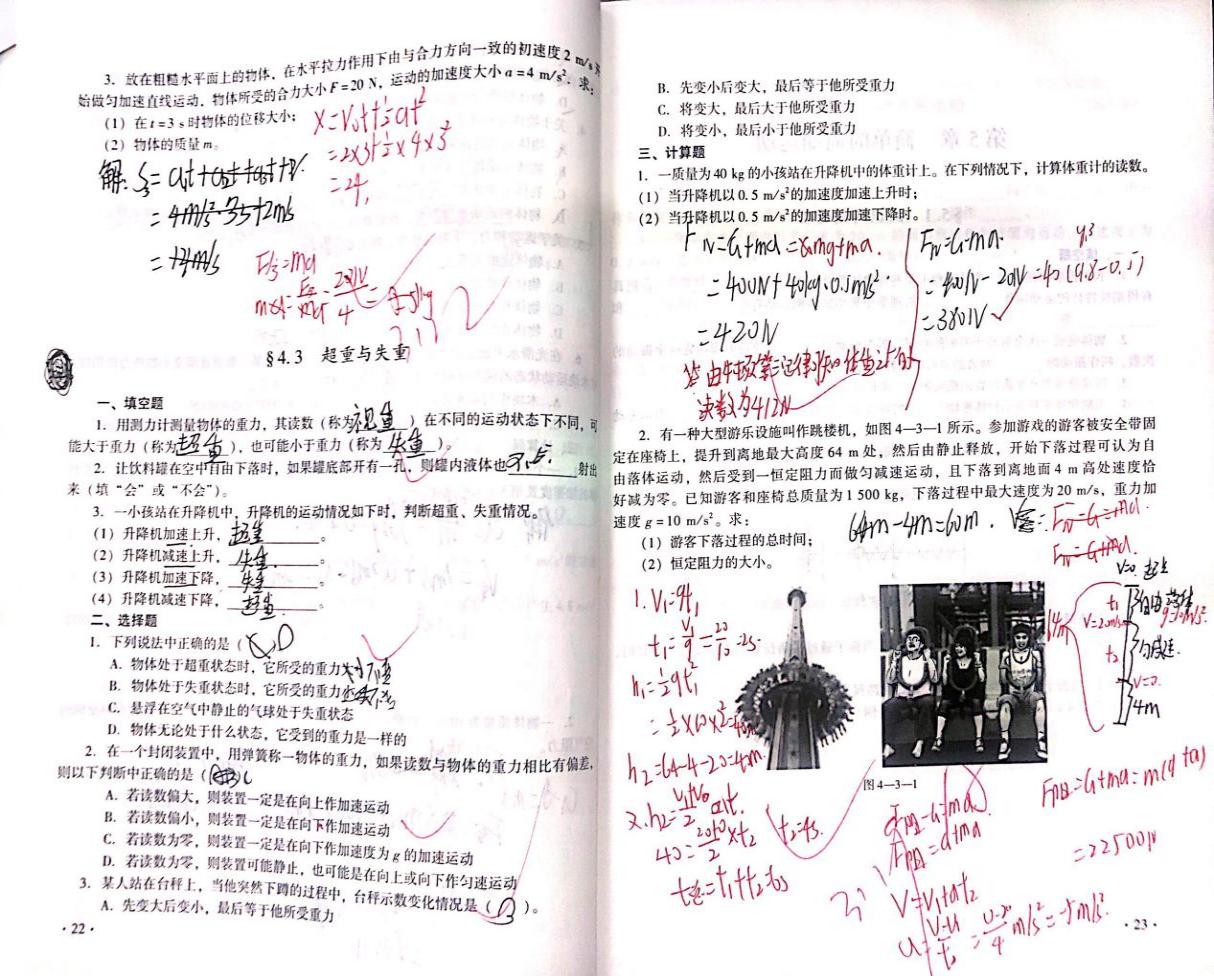 3. 放在粗糙水平面上的物体，在水平拉力作用下由与合力方向一致的初速度 2 m/s 开
始做匀加速直线运动，物体所受的合力大小 F=20 N，运动的加速度大小 a=4 m/s²。求：
(1) 在 t=3 s 时物体的位移大小；
(2) 物体的质量 m。
X=V₀t+½at²
=2×3+½×4×3²
=24
§4.3 超重与失重
一、填空题
1. 用测力计测量物体的重力，其读数（称为视重）在不同的运动状态下不同，可
能大于重力（称为超重），也可能小于重力（称为失重）。
2. 让饮料罐在空中自由下落时，如果罐底部开有一孔，则罐内液体也 射出
来（填“会”或“不会”）。
3. 一小孩站在升降机中，升降机的运动情况如下时，判断超重、失重情况。
(1) 升降机加速上升，超重。
(2) 升降机减速上升，失重。
(3) 升降机加速下降，失重。
(4) 升降机减速下降，超重。
二、选择题
1. 下列说法中正确的是（ D
A. 物体处于超重状态时，它所受的重力
B. 物体处于失重状态时，它所受的重力
C. 悬浮在空气中静止的气球处于失重状态
D. 物体无论处于什么状态，它受到的重力是一样的
2. 在一个封闭装置中，用弹簧称一物体的重力，如果读数与物体的重力相比有偏差，
则以下判断中正确的是（ C
A. 若读数偏大，则装置一定是在向上作加速运动
B. 若读数偏小，则装置一定是在向下作加速运动
C. 若读数为零，则装置一定是在向下作加速度为 g 的加速运动
D. 若读数为零，则装置可能静止，也可能是在向上或向下作匀速运动
3. 某人站在台秤上，当他突然下蹲的过程中，台秤示数变化情况是（B）。
A. 先变大后变小，最后等于他所受重力
·22·
B. 先变小后变大，最后等于他所受重力
C. 将变大，最后大于他所受重力
D. 将变小，最后小于他所受重力
三、计算题
1. 一质量为 40 kg 的小孩站在升降机中的体重计上。在下列情况下，计算体重计的读数。
(1) 当升降机以 0.5 m/s²的加速度加速上升时；
(2) 当升降机以 0.5 m/s²的加速度加速下降时。
F_N=G+ma=mg+ma
=400N+40kg·0.5m/s²
=420N
F_N=G-ma
=400N-20N=40(9.8-0.5)
=380N
答由牛顿第二定律得知体重计的
读数为412N
2. 有一种大型游乐设施叫作跳楼机，如图 4—3—1 所示。参加游戏的游客被安全带固
定在座椅上，提升到离地最大高度 64 m 处，然后由静止释放，开始下落过程可认为自
由落体运动，然后受到一恒定阻力而做匀减速运动，且下落到离地面 4 m 高处速度恰
好减为零。已知游客和座椅总质量为 1 500 kg，下落过程中最大速度为 20 m/s，重力加
速度 g=10 m/s²。求：
64m-4m=60m.
(1) 游客下落过程的总时间；
(2) 恒定阻力的大小。
1. V₁=gt₁
t₁=V₁/g=20/10=2s
h₁=½gt₁²
=½×10×2²
h₂=64-4-20=40m
又h₂=(V₁+V₀)/2
40=(20+0)/2×t₂
t₂=4s.
t总=t₁+t₂=6s
64m
V=20m/s
t₁
t₂
V=0
4m
图 4—3—1
F阻-G=ma
F阻=G+ma
F阻=G+ma=m(g+a)
=22500N
V=V₁+at₂
·23·